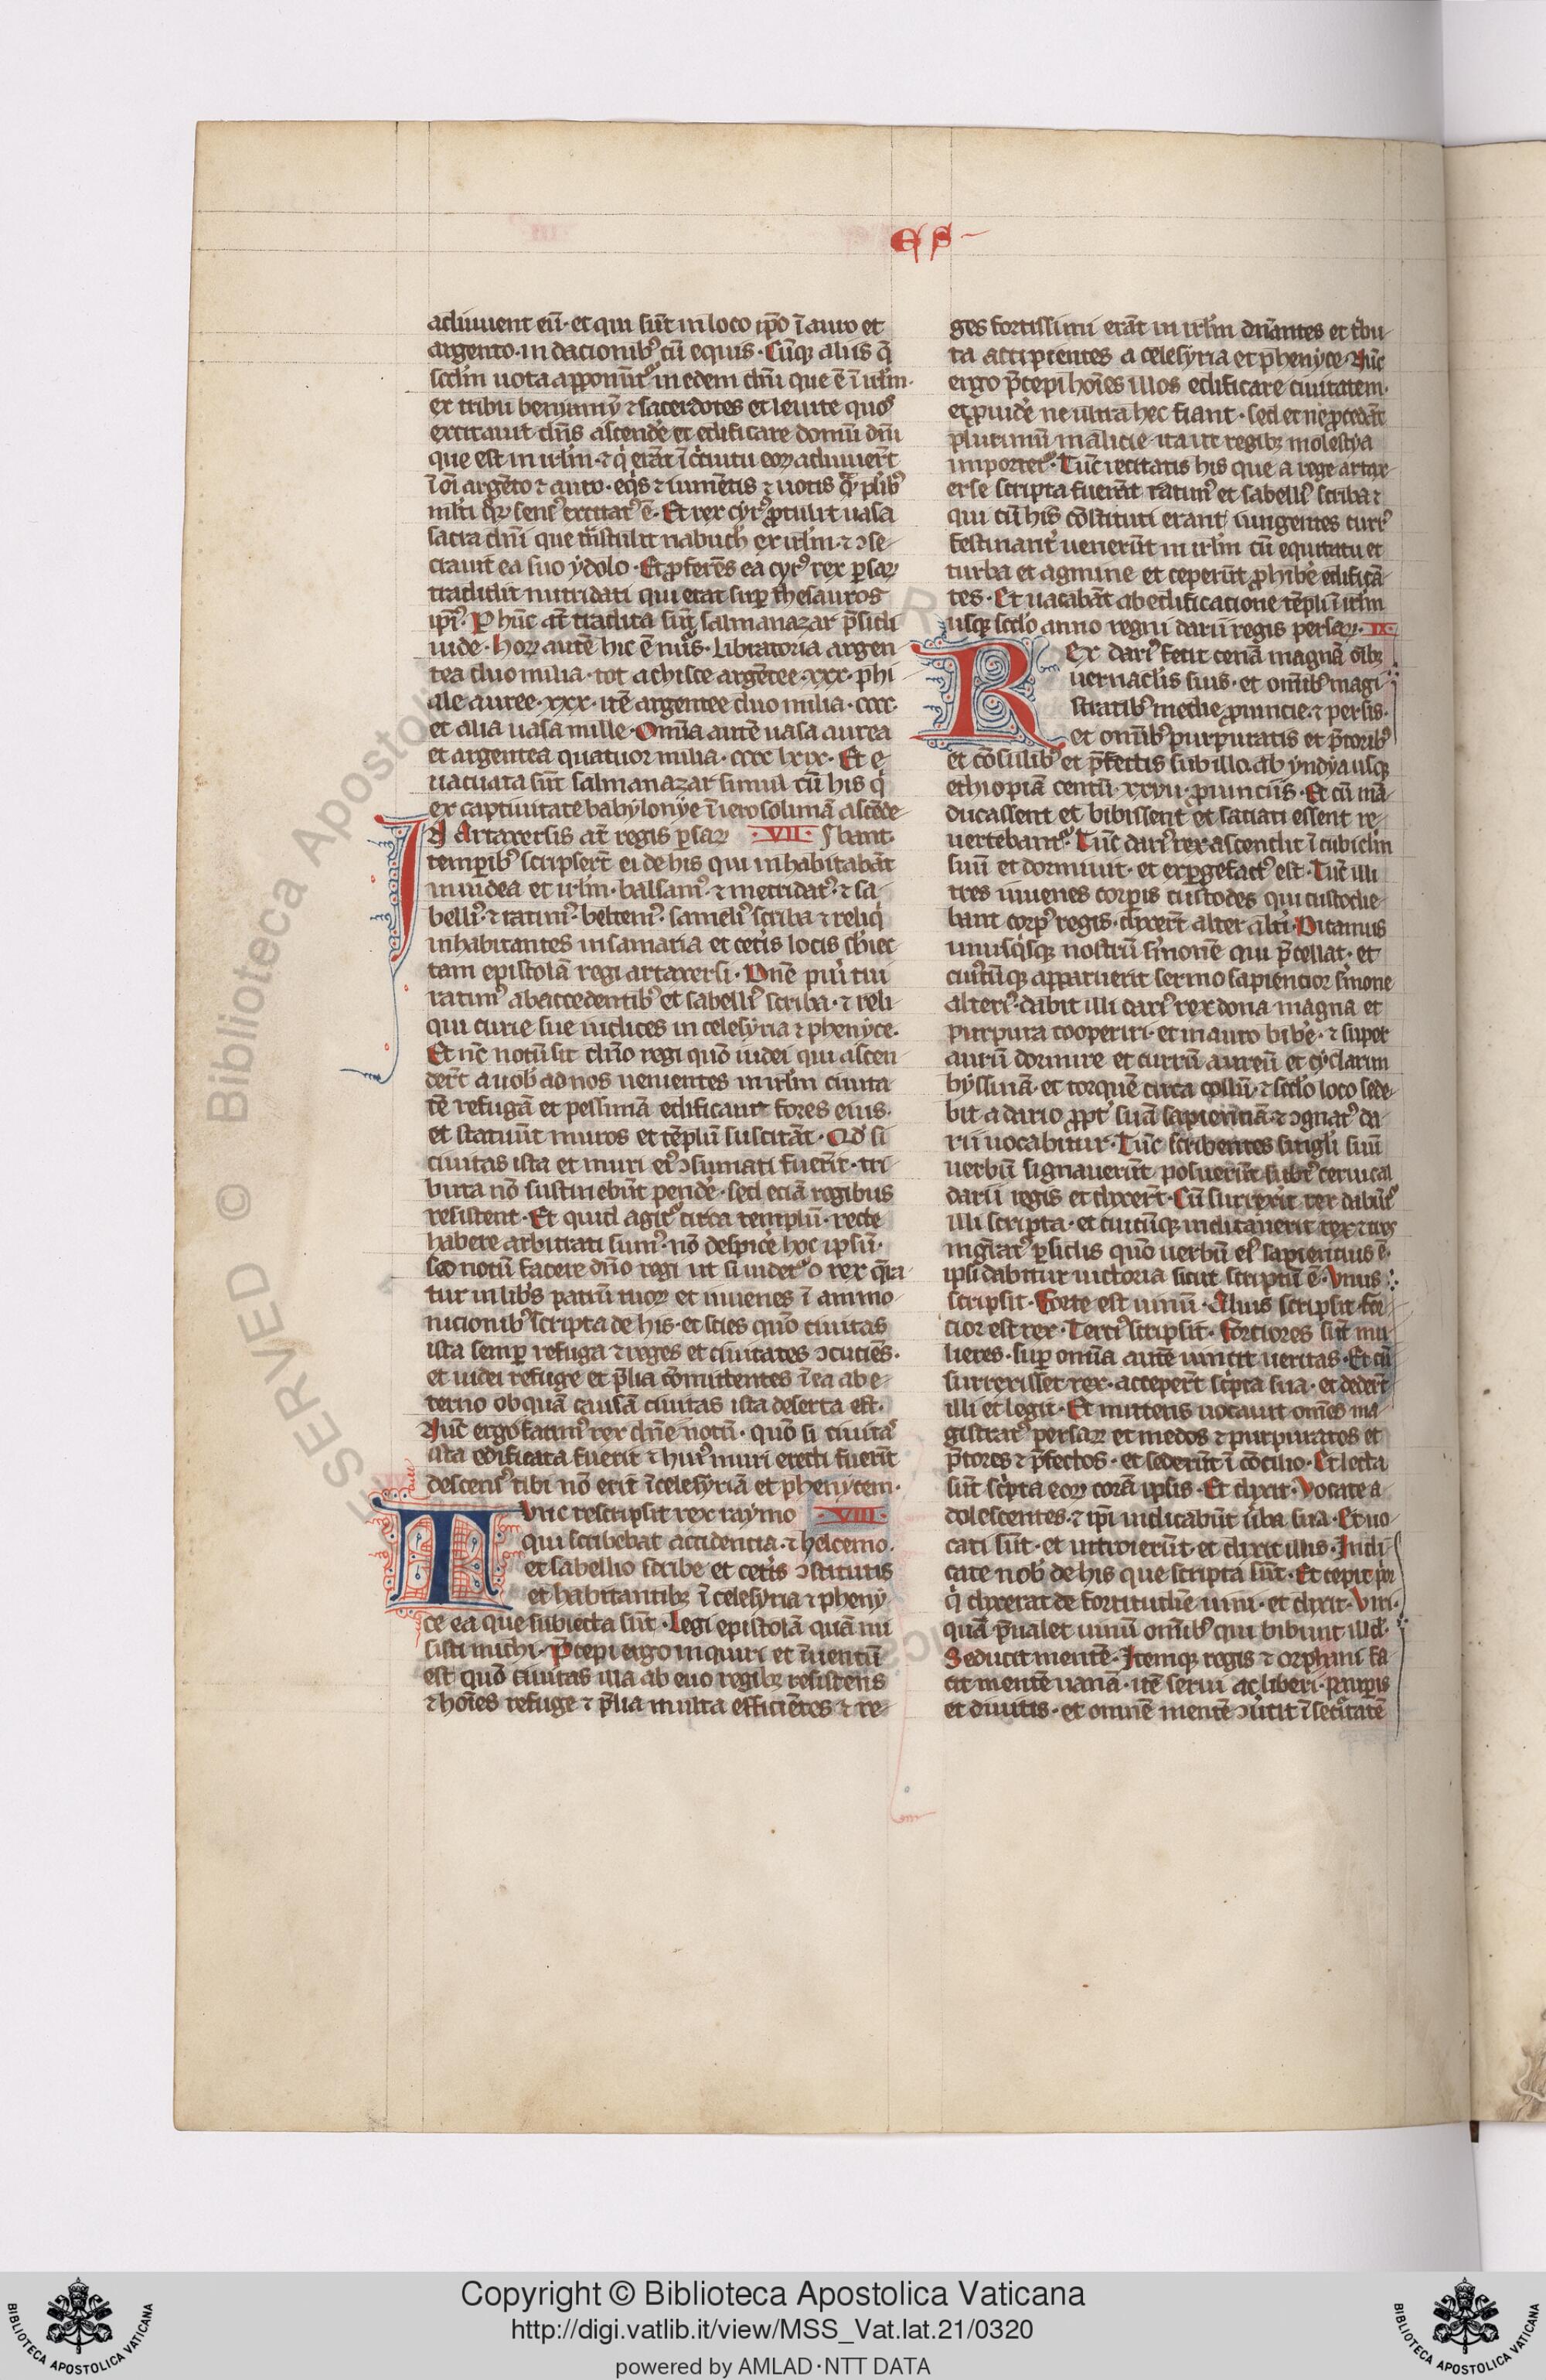 ES
adiuuent eū · et qui sūt in loco ip̄o ī auro et
argento · in dacionibꝰ cū equis · Cūqꝫ aliis q̄
scd̄m uota apponūtꝰ in edem dn̄i que ē ī irl̄m ·
ex tribu beniamȳ ⁊ sacerdotes et leuite quos
excitauit dn̄s ascendē et edificare domū dn̄i
que est in irl̄m · ⁊ q̇ erāt ī c̄cuitu eoꝝ adiuuer̄t
ī oī argēto ⁊ auro · eq̇s ⁊ iumētis ⁊ uotis
sensꝰ excitatꝰ ē · Et rex cyrꝰ ꝓtulit uasa
sacra dn̄i que trāstulit nabuch̄ ex irl̄m · ⁊ ↄse-
crauit ea suo ydolo · Et ꝓferēs ea cyrꝰ rex ꝑsaꝝ
tradidit mitridati qui erat suꝑ thesauros
ip̄iꝰ · P hūc at̄ tradita sūt salmanazar p̄sidi
iude · Hoꝝ autē hic ē nūs · Libratoria argen
tea duo milia · tot achisce argētee · xxx · phi
ale auree · xxx · itē argentee duo milia · cccc ·
et alia uasa mille · Omīa autē uasa aurea
et argentea quatuor milia · cccc lxix · Et e
uacuata sūt salmanazar simul cū his q̇
ex captiuitate babylonye ī ierosolimā ascēde-
N Artaxersis at̄ regis ꝑsaꝝ · VII · bant ·
temꝑibꝰ scripser̄t ei de his qui inhabitabāt
in iudea et irl̄m · balsamꝰ · ⁊ metridatꝰ · ⁊ sa-
bellꝰ · ⁊ ratimꝰ · beltemꝰ · sameliꝰ scriba ⁊ reliq̇
inhabitantes in samaria et cet̄is locis
tam epistolā regi artaxersi · Dn̄e pu̇i tui
ratimꝰ ab accedentibꝰ et sabelliꝰ scriba · ⁊ reli-
qui curie sue iudices in celesyria ⁊ phenyce ·
Et nc̄ notū sit dn̄o regi quō iudei qui ascen-
der̄t a uob̄ ad nos uenientes in irl̄m ciuita-
tē refugā et pessimā edificant fores eius ·
et statuūt muros et tēplū suscitāt · Qd̄ si
ciuitas ista et muri eiꝰ ↄsumati fuerīt · tri-
buta nō sustinebūt pendē · sed eciā regibus
resistent · Et quid agitꝰ circa templū · recte
habere arbitrati sumꝰ · nō despicē hoc ipsū ·
sed notū facere dn̄o regi ut si uidetꝰ o rex q̄ra-
tur in lib̄s patrū tuoꝝ et inuenies ī ammo-
nicionibꝰ scripta de his · et scies quō ciuitas
ista semꝑ refuga ⁊ reges et ciuitates ↄcuciēs ·
et iudei refuge et p̄lia cōmittentes ī ea ab e-
terno ob quā causā ciuitas ista deserta est ·
Nūc ergo rex dn̄e notū · quō si ciuitas
ista edificata fuerit ⁊ huiꝰ muri erecti fuerīt
descensꝰ tibi nō erit ī celesyriā et phenycem ·
Tunc rescripsit rex raymo · VIII ·
qui scribebat accidencia · ⁊ helcemo ·
et sabellio scribe et cet̄is ↄstitutis
et habitantibꝫ ī celesyria ⁊ pheny
ce ea que subiecta sūt · Legi epistolā quā mi
sisti michi · p̄cepi ergo inquiri et īuentū
est quō ciuitas illa ab euo regibꝫ resistens
⁊ hoīes refuge ⁊ p̄lia multa efficiētes ⁊ re-
ges fortissimi erāt in irl̄m dn̄antes et tͥbu-
ta accipientes a celesyria et phenyce · Nūc
ergo p̄cepi hoīes illos edificare ciuitatem ·
et ꝓuidē ne ultra hec fiant · sed et ne ꝓcedāt
plurimū malicie · ita ut regibꝫ molestya
importetꝰ · Tūc recitatis his que a rege artax-
erse scripta fuerāt ratimꝰ et sabelliꝰ scriba ⁊
qui cū his cōstituti erant iungentes curꝰ
festinant̄ uenerūt in irl̄m cū equitatu et
turba et agmine et ceperūt ꝓhibē edificā-
tes · Et uacabāt ab edificatione tēpli ī irl̄m
usqꝫ scd̄o anno regni darii regis persaꝝ · IX ·
Rex dariꝰ fecit cenā magnā oībꝫ
uernaclis suis · et omībꝰ magi
stratibꝰ medie ꝓuincie · ⁊ persis ·
et omībꝰ purpuratis et p̄toribꝰ
et cōsulibꝰ et p̄fectis sub illo · ab yndya usqꝫ
ethiopiā centū · xxvii · ꝓuinciis · Et cū mā-
ducassent et bibissent et saciati essent re-
uertebantꝰ · Tūc dariꝰ rex ascendit ī cubiclm̄
suū et dormiuit · et exꝑgefactꝰ est · Tūc illi
tres iuuenes corꝑis custodes qui custodie-
bant corpꝰ regis · dixer̄t alter alt̄i · Dicamus
unusq̇sqꝫ nostrū s̄monē qui p̄cellat · et
cuiꝰcūqꝫ apparuerit sermo sapiencior s̄mone
alteriꝰ · dabit illi dariꝰ rex dona magna et
purpura cooperiri · et in auro bibē · ⁊ super
aurū dormire et currū aureū et cyclarim
byssinā · et torquē circa collū · ⁊ scd̄o loco sede-
bit a dario ꝓpt̄ suā sapienciā · ⁊ ↄgnatꝰ da-
rii uocabitur · Tūc scribentes singli suū
uerbū signauerūt · posuerūt subtꝰ ceruical
darii regis et dixer̄t · Cū surrexit rex dabūtꝰ
illi scripta · et cuicūqꝫ iudicauerit rex ⁊ tres
mgr̄atꝰ ꝑsidis quō uerbū eiꝰ sapiencius ē ·
ipsi dabitur uictoria sicut scriptū ē · Vnus
scripsit · Forte est uinū · Alius scripsit · for
cior est rex · Terciꝰ scripsit · Forciores sūt mu
lieres · suꝑ omīa autē uincit ueritas · Et cū
surrexisset rex · acceper̄t sc̄pta sua · et deder̄t
illi et legit · Et mittens uocauit om̄es ma
gistratꝰ persaꝝ et medos ⁊ purpuratos et
p̄tores ⁊ p̄fectos · et sederūt ī cōcilio · Et lecta
sūt sc̄pta eoꝝ corā ipsis · Et dixit · Vocate a-
dolescentes · ⁊ ip̄i iudicabūt ūba sua · Et uo-
cati sūt · et introierūt · et dixit illis · Iudi
cate nob̄ de his que scripta sūt · Et cepit p̄or
q̇ dixerat de fortitudīe uini · et dixit · Viri ·
quā p̄ualet uinū omībꝰ qui bibunt illd̄ ·
Seducit mentē · Itemqꝫ regis ⁊ orphani fa
cit mentē uanā · itē serui ac liberi · Pauꝑis
et diuitis · et omnē mentē ↄu̇tit ī secͥtatē
Copyright © Biblioteca Apostolica Vaticana
http://digi.vatlib.it/view/MSS_Vat.lat.21/0320
powered by AMLAD·NTT DATA
BIBLIOTECA APOSTOLICA VATICANA
BIBLIOTECA APOSTOLICA VATICANA